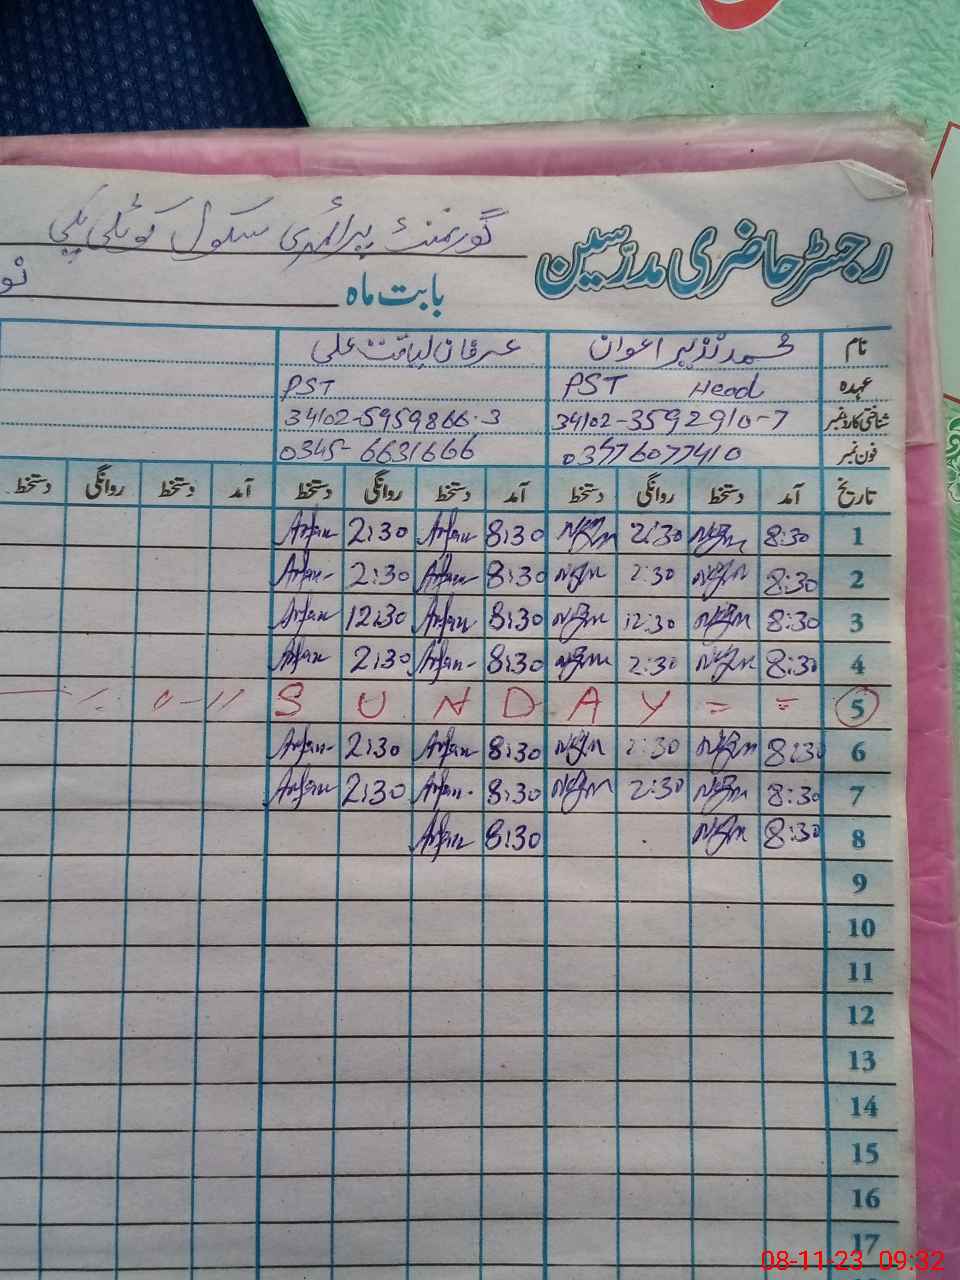 رجسٹر حاضری مدرّسین گورنمنٹ پرائمری سکول کوٹلی
بابت ماہ نو
نام محمد نذیر اعوان عرفان لیاقت علی
عہدہ PST Head PST
شناختی کارڈ نمبر 34102-3592910-7 34102-5959866-3
فون نمبر 03476077410 0345-6631666
تاریخ آمد دستخط روانگی دستخط آمد دستخط روانگی دستخط آمد دستخط روانگی دستخط
1 8:30 2:30 8:30 Arfan 2:30 Arfan
2 8:30 2:30 8:30 Arfan 2:30 Arfan
3 8:30 12:30 8:30 Arfan 12:30 Arfan
4 8:30 2:30 8:30 Arfan 2:30 Arfan
5 = = SUNDAY
6 8:30 2:30 8:30 Arfan 2:30 Arfan
7 8:30 2:30 8:30 Arfan 2:30 Arfan
8 8:30 8:30 Arfan
9
10
11
12
13
14
15
16
17
08-11-23 09:32